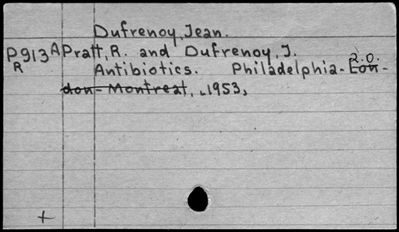 Dufrenoy, Jean.
P913A Pratt, R. and Dufrenoy, J.
R Antibiotics. Philadelphia- 2.0. Lon-
don-Montreal, 1953,
+